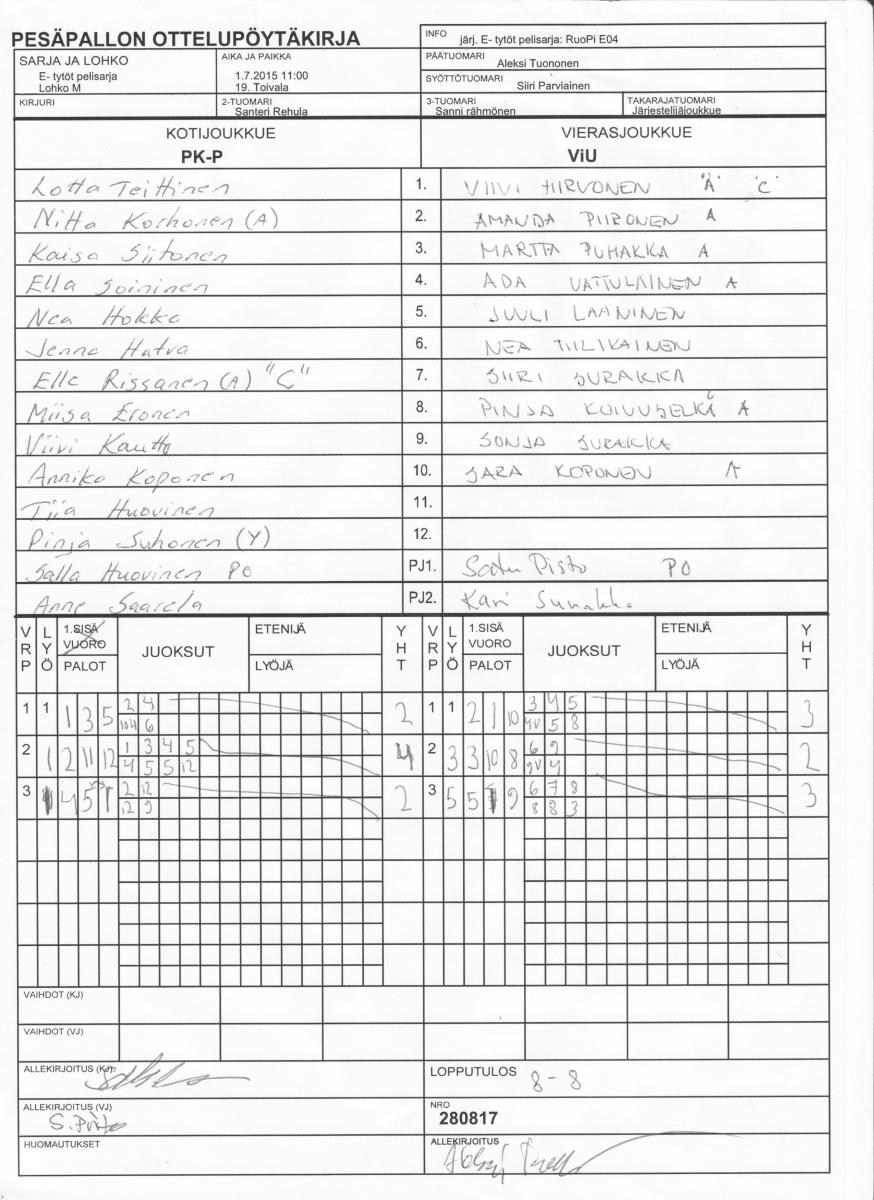 PESÄPALLON OTTELUPÖYTÄKIRJA
INFO järj. E- tytöt pelisarja: RuoPi E04
SARJA JA LOHKO
E- tytöt pelisarja
Lohko M
AIKA JA PAIKKA
1.7.2015 11:00
19. Toivala
PÄÄTUOMARI
Aleksi Tuononen
SYÖTTÖTUOMARI
Siiri Parviainen
KIRJURI
2-TUOMARI
Santeri Rehula
3-TUOMARI
Sanni rähmönen
TAKARAJATUOMARI
Järjestelijäjoukkue
KOTIJOUKKUE VIERASJOUKKUE
PK-P ViU
Lotta Teittinen 1. VIIVI HIRVONEN "A" "C"
Niitta Korhonen (A) 2. AMANDA PIIRONEN A
Kaisa Siitonen 3. MARTTA PUHAKKA A
Ella Soininen 4. ADA VATTULAINEN A
Nea Hokka 5. JUULI LAANINEN
Jenna Hatva 6. NEA TIILIKAINEN
Ella Rissanen (A) "C" 7. SIIRI SURAKKA
Miisa Eronen 8. PINJA KOIVUSELKÄ A
Viivi Kautto 9. SONJA SURAKKA
Anniko Koponen 10. SARA KOPONEN A
Tiia Huovinen 11.
Pinja Suhonen (Y) 12.
Salla Huovinen PO PJ1. Satu Pisto PO
Anne Saarela PJ2. Kari Surakka
VRP LYÖ 1.SISÄ VUORO PALOT JUOKSUT ETENIJÄ LYÖJÄ YHT VRP LYÖ 1.SISÄ VUORO PALOT JUOKSUT ETENIJÄ LYÖJÄ YHT
1 1 1 3 5 2 4 2 1 1 2 1 10 3 4 5 3
6 4V 5 8
2 1 2 11 12 1 3 4 5 4 2 3 3 10 8 6 9 2
4 5 5 12 9V 4
3 4 5 1 2 12 2 3 5 5 9 6 7 8 3
12 9 8 8 3
VAIHDOT (KJ)
VAIHDOT (VJ)
ALLEKIRJOITUS (KJ)
LOPPUTULOS 8 - 8
ALLEKIRJOITUS (VJ) S. Pisto
NRO
280817
HUOMAUTUKSET
ALLEKIRJOITUS